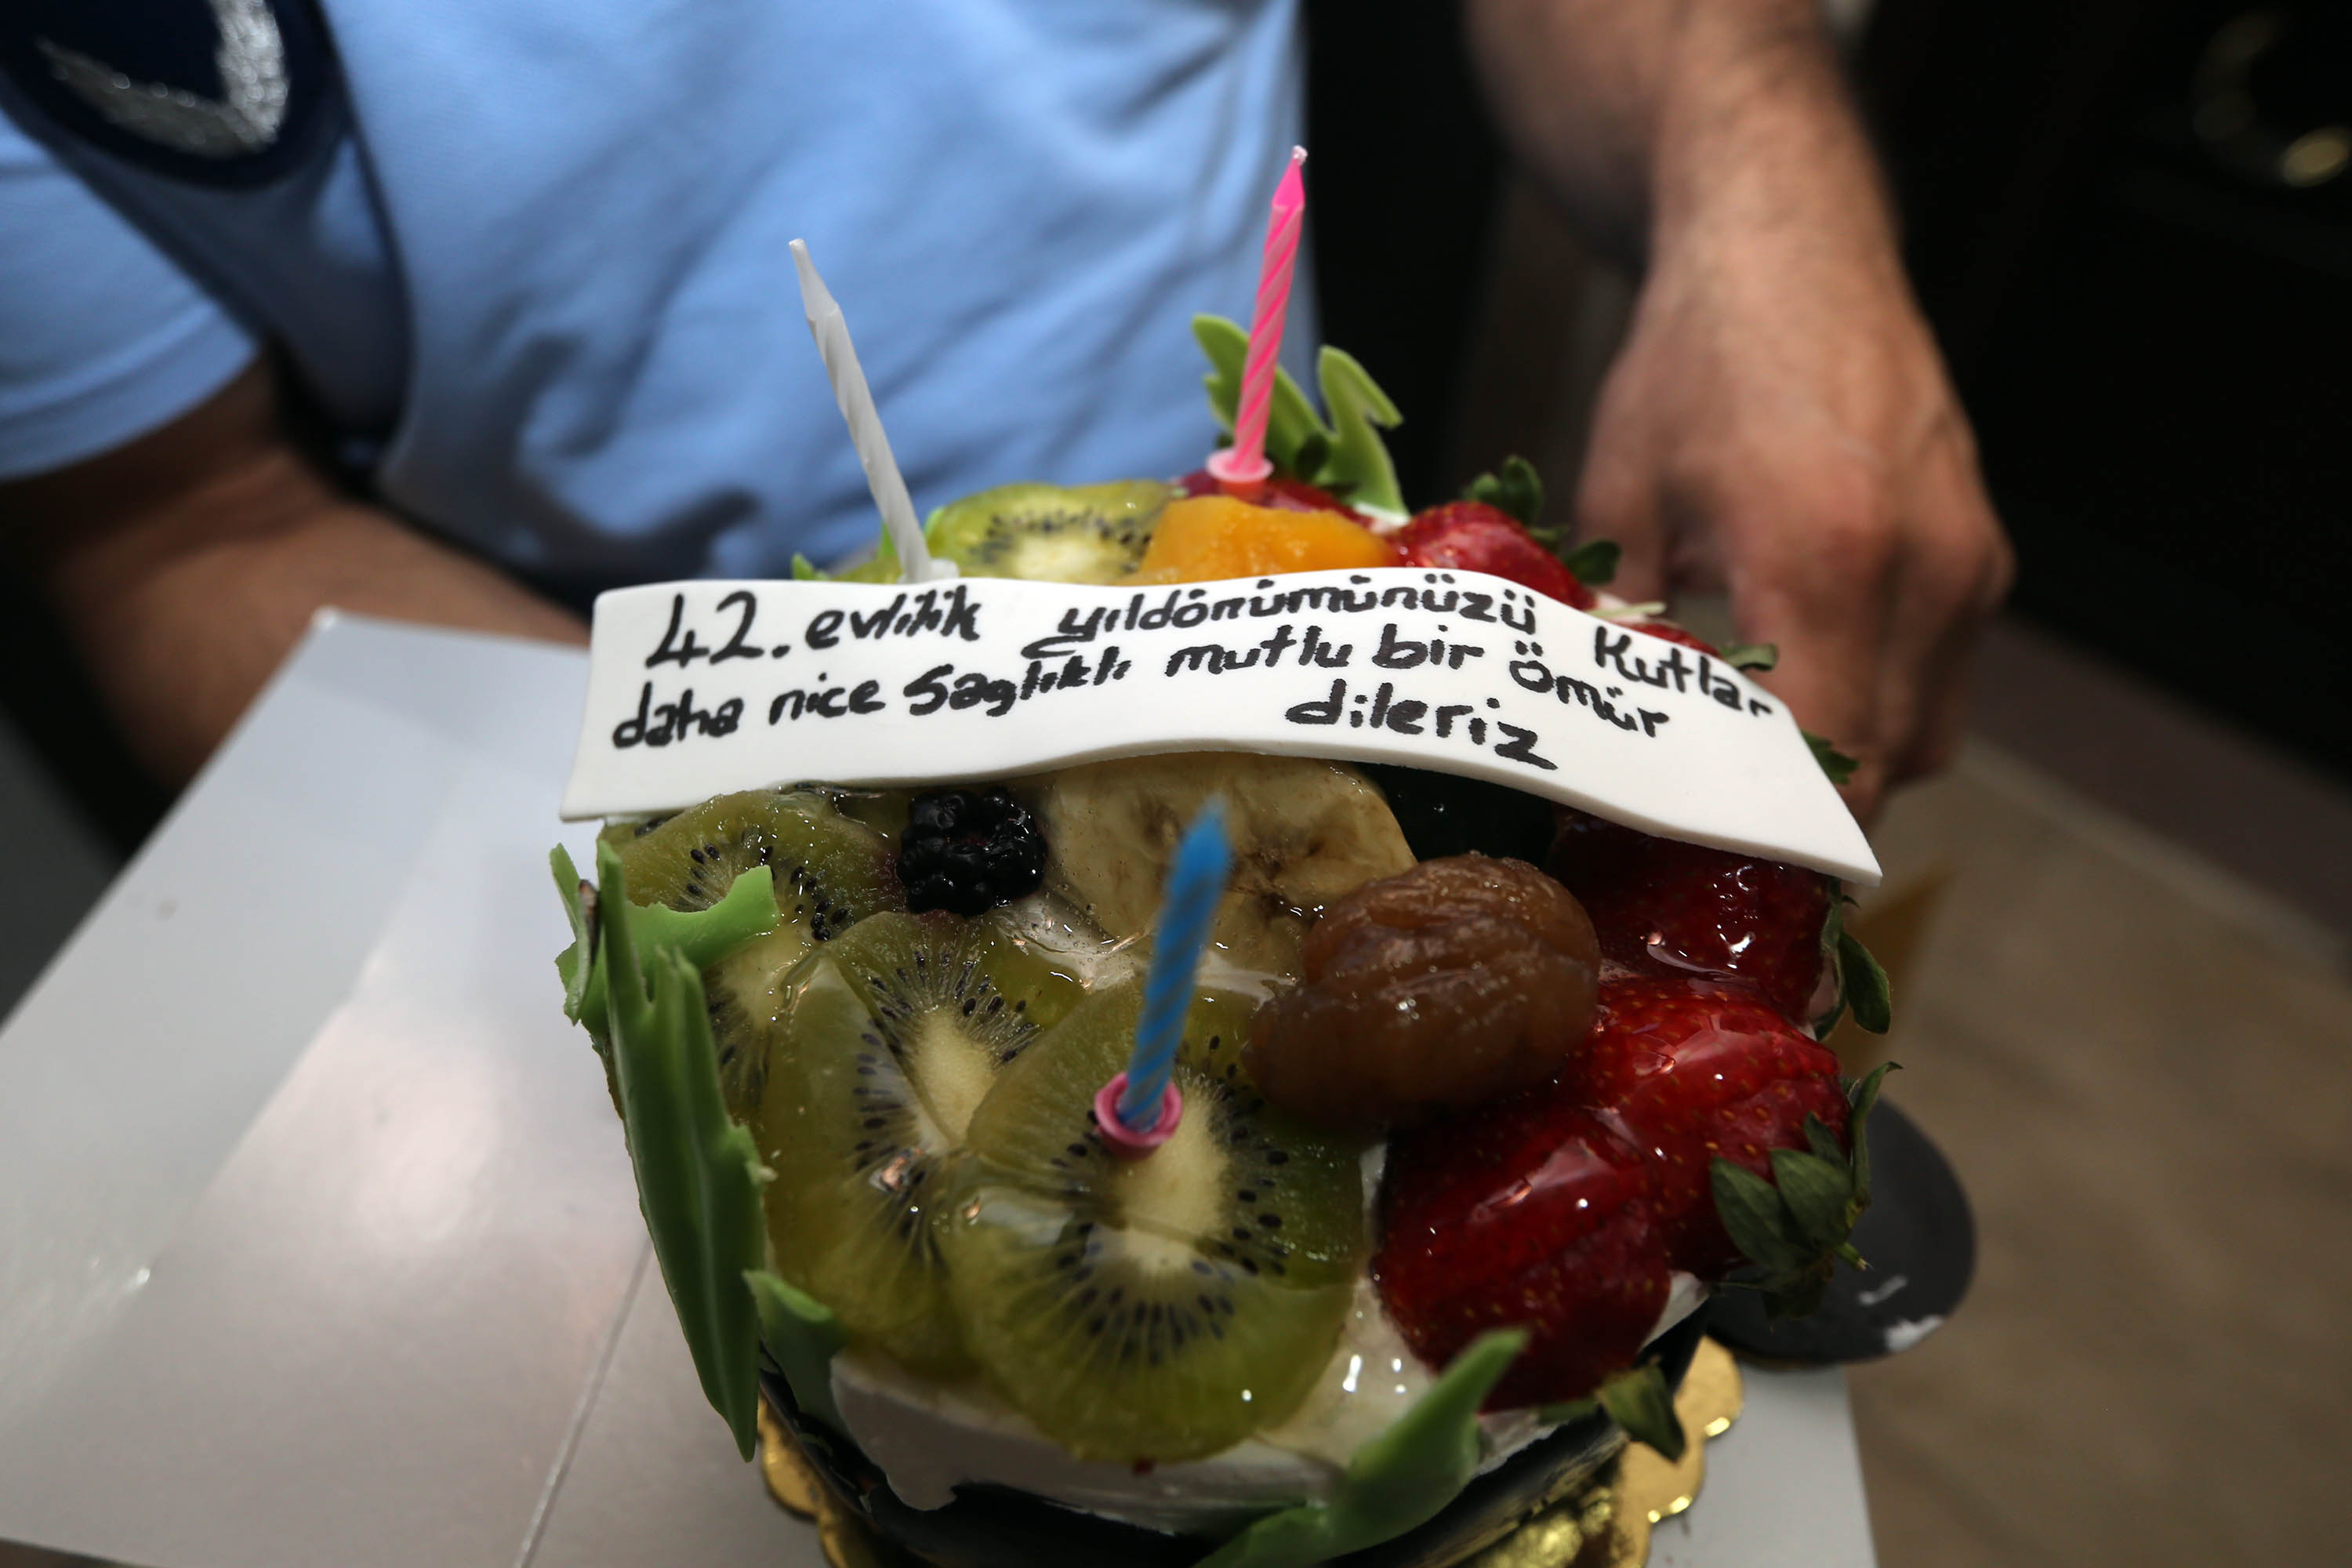 42. evlilik yıldönümünüzü Kutlar
daha nice Sağlıklı mutlu bir Ömür
dileriz